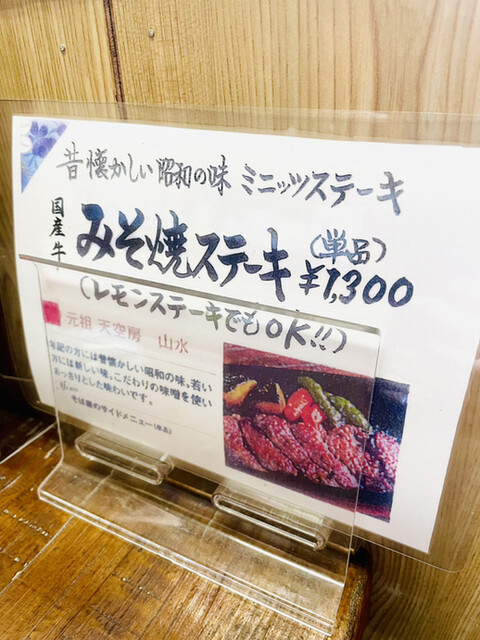 昔懐かしい昭和の味 ミニッツステーキ
国産牛
みそ焼ステーキ
(単品)
¥1,300
(レモンステーキでもOK!!)
元祖 天空房 山水
年配の方には昔懐かしい昭和の味、若い
方には新しい味。こだわりの味噌を使い
あっさりとした味わいです。
そば屋のサイドメニュー(単品)